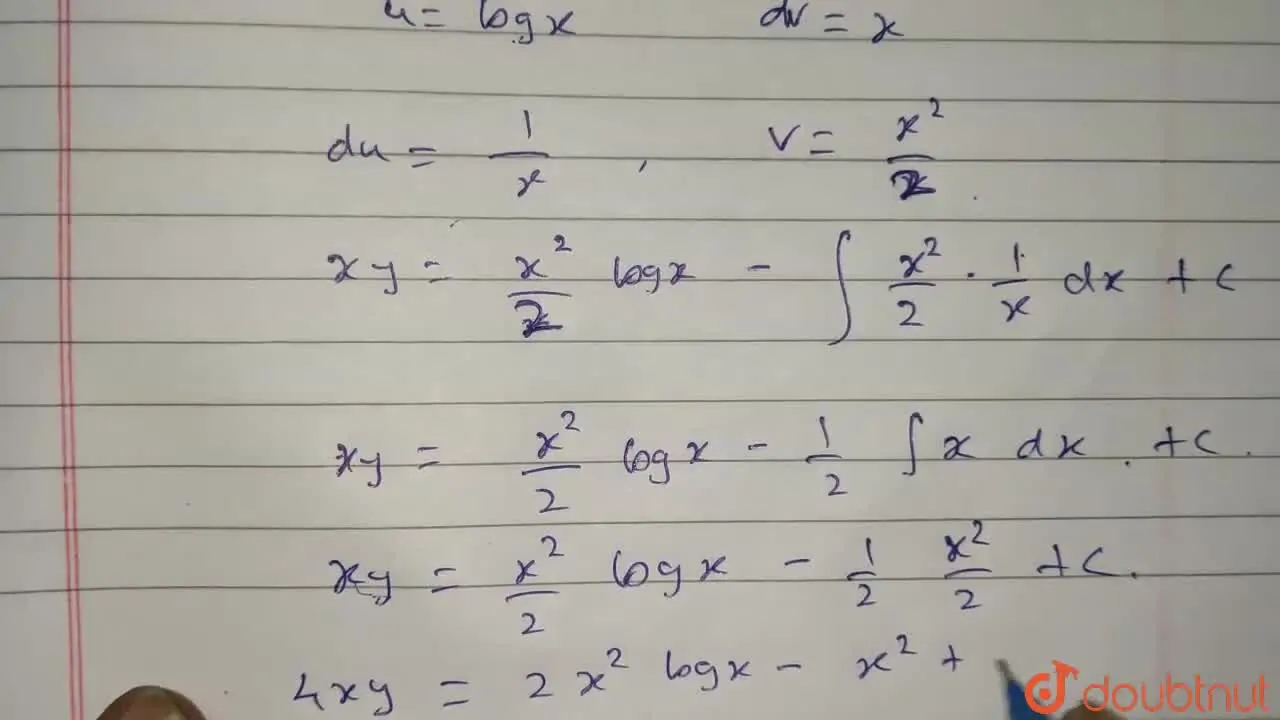 u = log x dv = x
du = 1/x , v = x²/2 .
xy = x²/2 log x - ∫ x²/2 · 1/x dx + c
xy = x²/2 log x - 1/2 ∫ x dx . + c .
xy = x²/2 log x - 1/2 x²/2 + c .
4xy = 2x² log x - x² +
doubtnut